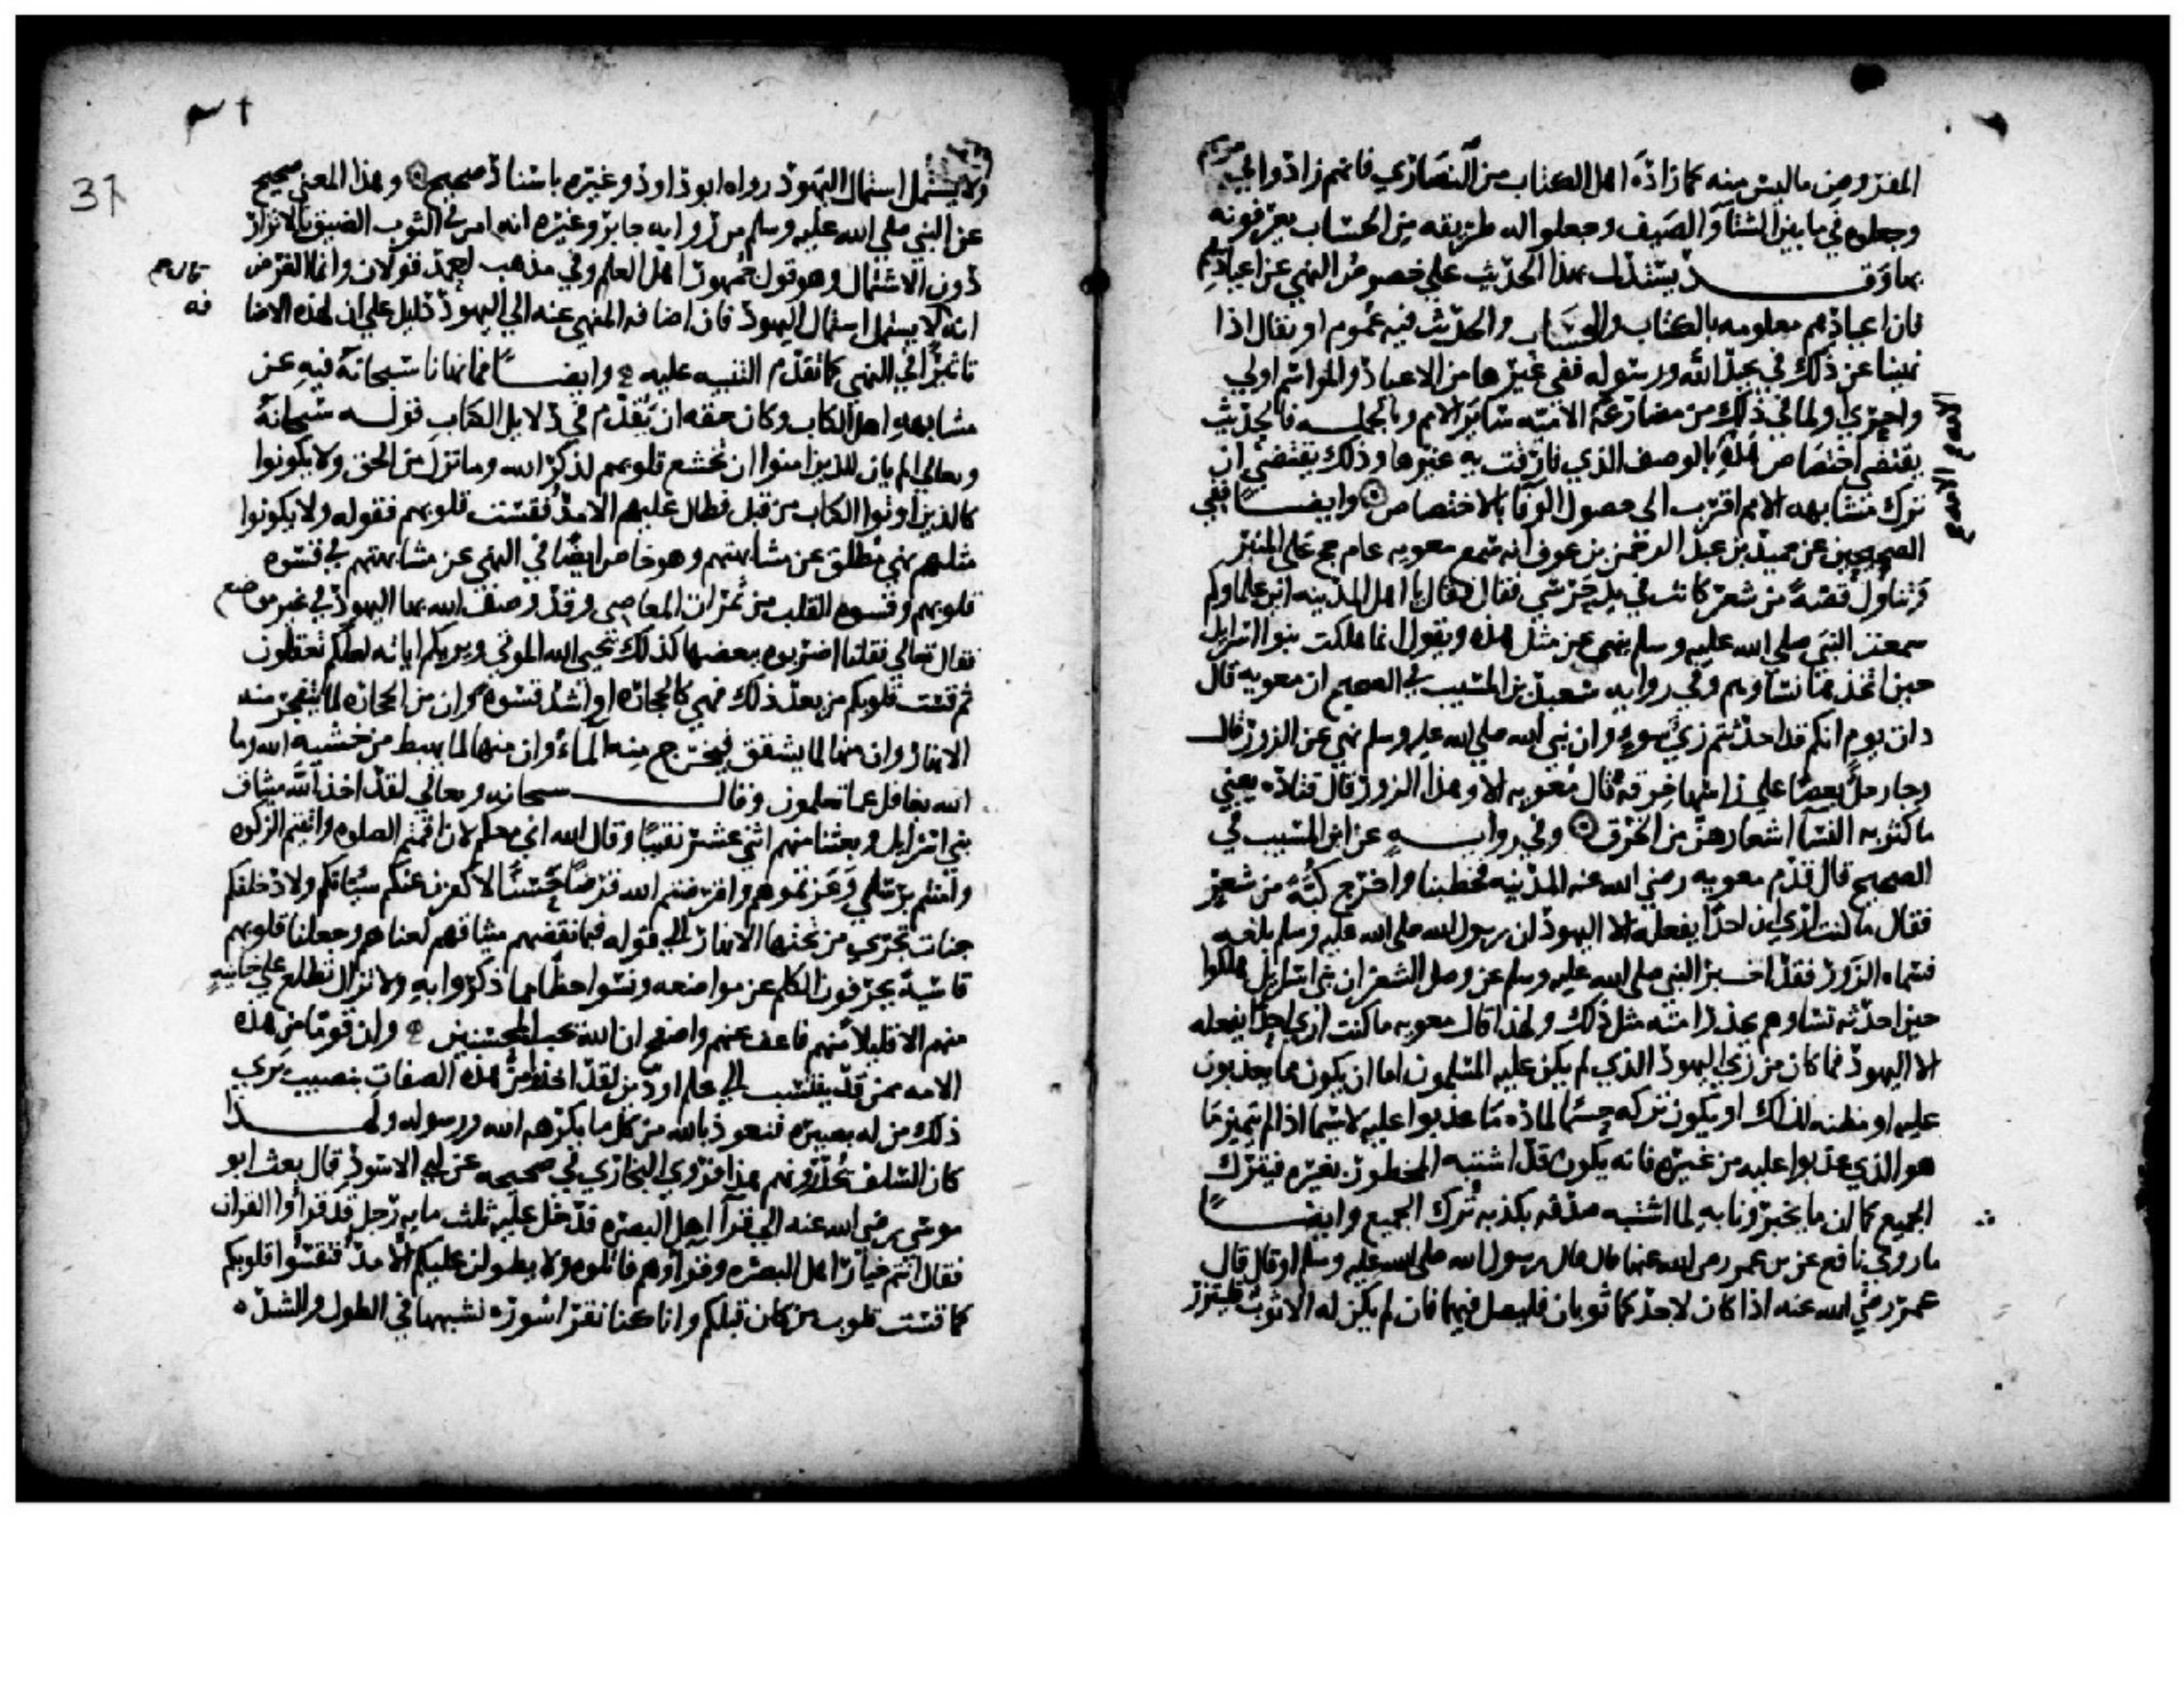 المفروض ما ليس منه كما زاده اهل الكتاب من النصارى فانهم زادوا في صومهم
وجعلوه في ما بين الشتا والصيف وجعلوا له طريقه من الحساب يعرفونه
بها وقد يستدل بهذا الحديث على خصوص النهي عن اعيادهم
فان اعيادهم معلومه بالكتاب والحساب والحديث فيه عموم او يقال اذا
نهينا عن ذلك في عيد الله ورسوله ففي غيرها من الاعياد والمواسم اولى
واحرى ولما في ذلك من مضارعة الامة سائر الامم وبالجمله فالحديث
يقتضي اختصاص هذه بالوصف الذي فارقت به غيرها وذلك يقتضي ان
ترك مشابهه الامم اقرب الى حصول الوفا بالاختصاص وايضا ففي
الصحيحين عن حميد بن عبد الرحمن بن عوف انه سمع معويه عام حج على المنبر
وتناول قصة من شعر كانت في يد حرسي فقال يا اهل المدينه اين علماوكم
سمعت النبي صلى الله عليه وسلم ينهى عن مثل هذه ويقول انما هلكت بنوا اسرايل
حين اتخذها نساوهم وفي روايه سعيد بن المسيب في الصحيح ان معويه قال
ذات يوم انكم قد احدثتم زي سوء وان نبي الله صلى الله عليه وسلم نهى عن الزور قال
وجا رجل بعصا على راسها خرقه قال معويه الا وهذا الزور قال قتاده يعني
ما يكثر به النسا اشعارهن من الخرق وفي روايه عن ابن المسيب في
الصحيح قال قدم معويه رضي الله عنه المدينه فخطبنا واخرج كبة من شعر
فقال ما كنت ارى ان احدا يفعله الا اليهود ان رسول الله صلى الله عليه وسلم بلغه
فسماه الزور فقد اخبر النبي صلى الله عليه وسلم عن وصل الشعر ان بني اسرايل هلكوا
حين احدثه نساوهم يحذر امته مثل ذلك ولهذا قال معويه ما كنت ارى احدا يفعله
الا اليهود فما كان من زي اليهود الذي لم يكن عليه المسلمون اما ان يكون مما يعذبون
عليه او مظنه لذلك او يكون تركه حسما لماده ما عذبوا عليه لا سيما اذا لم يتميز ما
هو الذي عذبوا عليه من غيره فانه يكون قد اشتبه المحظور بغيره فيترك
الجميع كما ان ما يخبرونا به لما اشتبه صدقه بكذبه ترك الجميع وايضا
ما روى نافع عن بن عمر رضي الله عنهما قال قال رسول الله صلى الله عليه وسلم او قال قال
عمر رضي الله عنه اذا كان لاحدكم ثوبان فليصل فيهما فان لم يكن له الا ثوب فليتزر
37
ولا يشتمل اشتمال اليهود رواه ابو داود وغيره باسناد صحيح وهذا المعنى صحيح
عن النبي صلى الله عليه وسلم من روايه جابر وغيره انه امر في الثوب الضيق بالاتزار
دون الاشتمال وهو قول جمهور اهل العلم وفي مذهب احمد قولان وانما الغرض
انه قال لا يشتمل اشتمال اليهود فان اضافه المنهي عنه الى اليهود دليل على ان لهذه الاضا
فه
تاثيرا في النهي كما تقدم التنبيه عليه وايضا فمما نهانا سبحانه فيه عن
مشابهه اهل الكتاب وكان حقه ان يقدم في دلايل الكتاب قوله سبحانه
وتعالى الم يان للذين امنوا ان تخشع قلوبهم لذكر الله وما نزل من الحق ولا يكونوا
كالذين اوتوا الكتاب من قبل فطال عليهم الامد فقست قلوبهم فقوله ولا يكونوا
مثلهم نهي مطلق عن مشابهتهم وهو خاص ايضا في النهي عن مشابهتهم في قسوه
قلوبهم وقسوه القلب من ثمرات المعاصي وقد وصف الله بها اليهود في غير موضع
فقال تعالى فقلنا اضربوه ببعضها كذلك يحيي الله الموتى ويريكم اياته لعلكم تعقلون
ثم قست قلوبكم من بعد ذلك فهي كالحجاره او اشد قسوه وان من الحجاره لما يتفجر منه
الانهار وان منها لما يشقق فيخرج منه الماء وان منها لما يهبط من خشيه الله وما
الله بغافل عما تعملون وقال سبحانه وتعالى لقد اخذ الله ميثاق
بني اسرايل وبعثنا منهم اثني عشر نقيبا وقال الله اني معكم لان اقمتم الصلوه واتيتم الزكوه
وامنتم برسلي وعزرتموهم واقرضتم الله قرضا حسنا لاكفرن عنكم سياتكم ولادخلنكم
جنات تجري من تحتها الانهار الى قوله فبما نقضهم ميثاقهم لعناهم وجعلنا قلوبهم
قاسية يحرفون الكلم عن مواضعه ونسوا حظا مما ذكروا به ولا تزال تطلع على خاينه
منهم الا قليلا منهم فاعف عنهم واصفح ان الله يحب المحسنين وان قوما من هذه
الامه ممن قد ينتسب الى علم او دين لقد اخذوا من هذه الصفات بنصيب يرى
ذلك من له بصيره فنعوذ بالله من كل ما يكرهه الله ورسوله ولهذا
كان السلف يحذرونهم هذا فروى البخاري في صحيحه عن ابي الاسود قال بعث ابو
موسى رضي الله عنه الى قرآ اهل البصره فدخل عليه ثلث مايه رجل قد قراوا القران
فقال انتم خيار اهل البصره وقراوهم فاتلوه ولا يطولن عليكم الامد فتقسوا قلوبكم
كما قست قلوب من كان قبلكم وانا كنا نقرا سورة نشبهها في الطول والشده